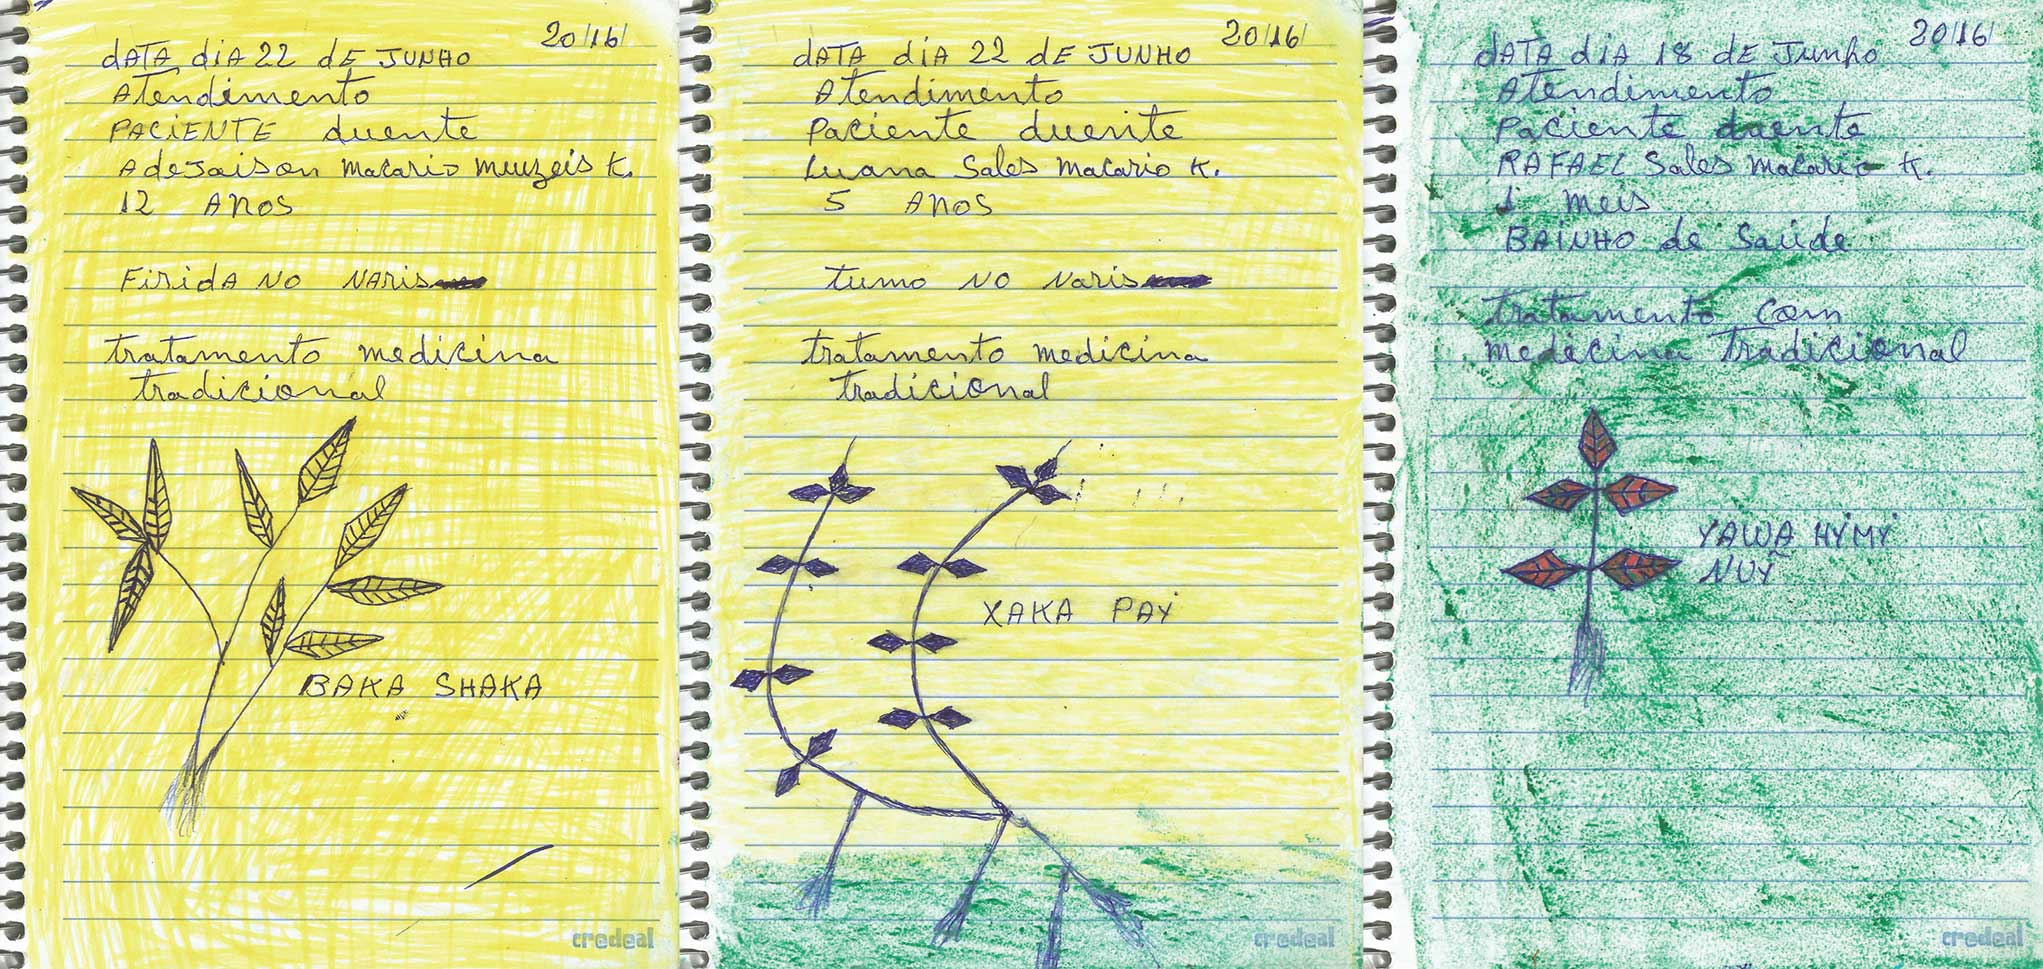 20/16/
dATA diA 22 dE JUNHO
Atendimento
PACIENTE duente
AdeJaison macario muuzeis K.
12 ANOS
FiridA NO NARis
tratamento medicina
tradicional
BAKA SHAKA
credeal
20/16/
dATA diA 22 dE JUNHO
Atendimento
Paciente duente
Luana Sales macario K.
5 ANOS
tumo NO Naris
tratamento medicina
tradicional
XAKA PAY
credeal
20/16/
dATA diA 18 dE Junho
Atendimento
Paciente duente
RAFAEL Sales macario K.
1 meis
BAINHO de Saúde
tratamento com
medecina Tradicional
YAWA HYMY
NUỸ
credeal